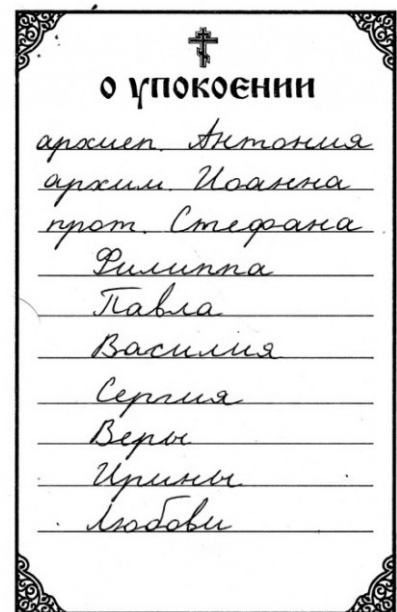 О УПОКОЕНИИ
архиеп. Антония
архим. Иоанна
прот. Стефана
Филиппа
Павла
Василия
Сергия
Веры
Ирины
Любови